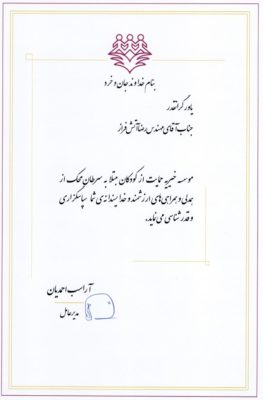 بنام خداوند جان و خرد
یاور گرانقدر
جناب آقای مهندس رضا آتش فراز
موسسه خیریه حمایت از کودکان مبتلا به سرطان محک از
همدلی و همراهی های ارزشمند و خداپسندانه ی شما سپاسگزاری
و قدرشناسی می نماید.
آراسب احمدیان
مدیرعامل